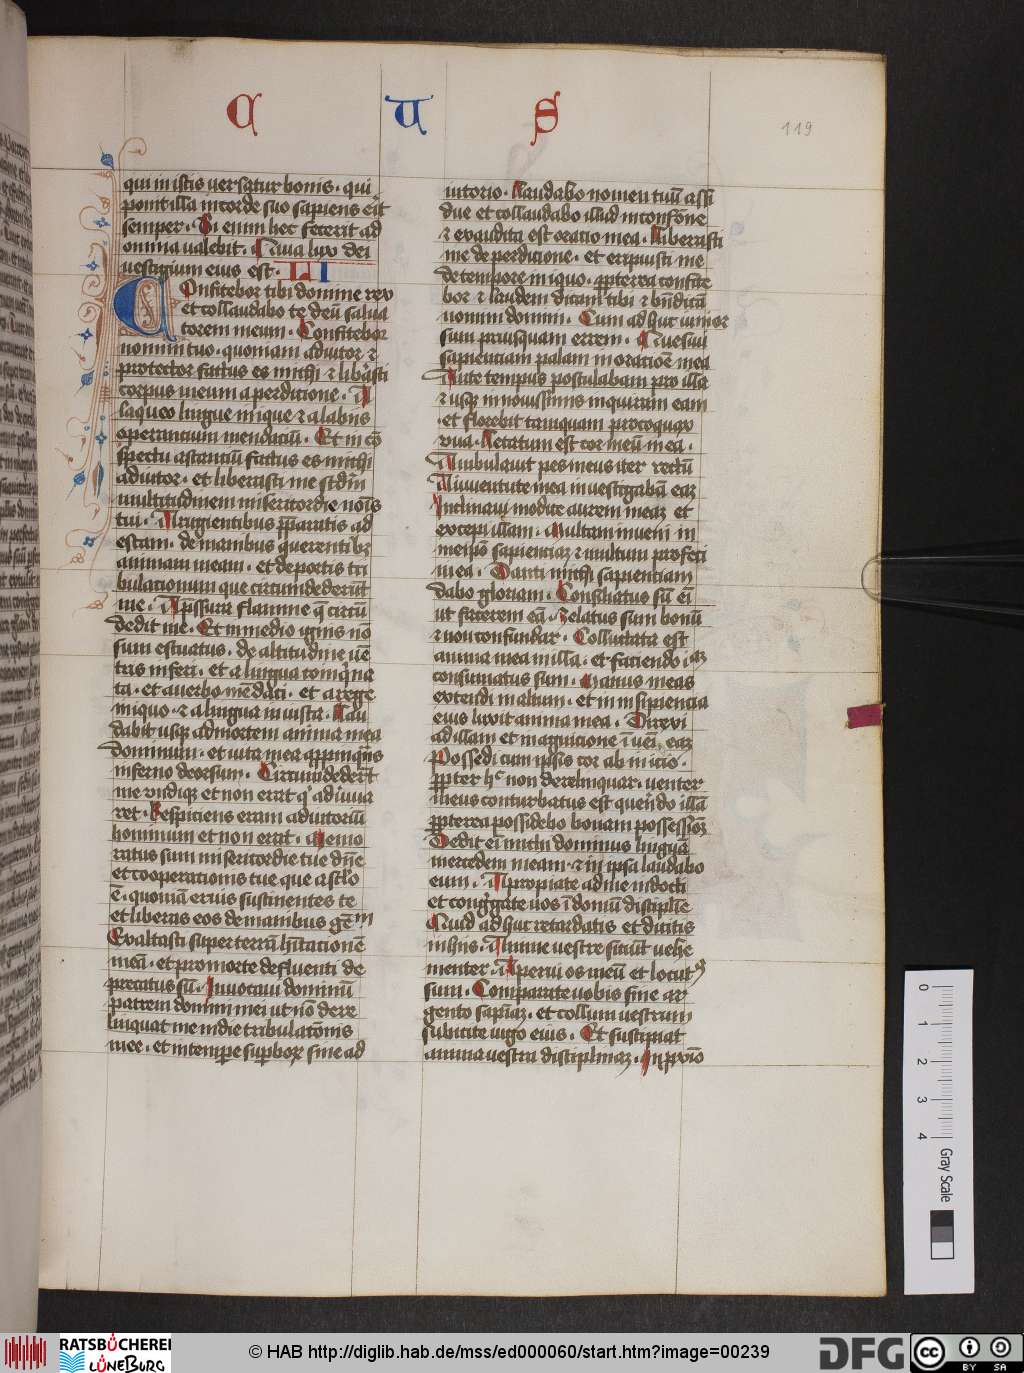 C U S
119
qui in istis uersatur bonis. qui
ponit illa in corde suo sapiens erit
semper. Si enim hec fecerit ad
omnia ualebit. Quia lux dei
uestigium eius est. LI
Confitebor tibi domine rex
et collaudabo te deū salua
torem meum. Confitebor
nomini tuo. quoniam adiutor ⁊
protector factus es michi ⁊ libāsti
corpus meum a perditione. A
laqueo lingue inique ⁊ a labiis
operantium mendaciū. Et in cō
spectu astantiū factus es michi
adiutor. et liberasti me scdm
multitudinem misericordie nois
tui. A rugientibus ppatis ad
escam. de manibus querentibꝫ
animam meam. et de portis tri
bulationum que circumdederūt
me. A pssura flamme q̄ circū
dedit me. Et in medio ignis nō
sum estuatus. de altitudine uē
tris inferi. et a lingua coinqīna
ta. et a uerbo mēdacii. et a rege
iniquo. ⁊ a lingua iniusta. Lau
dabit usqꝫ ad mortem anima mea
dominum. et uita mea appinqns
inferno deorsum. Circumdederūt
me undiqꝫ et non erat q' adiuua
ret. Respiciens eram adiutoriū
hominum et non erat. Memo
ratus sum misericordie tue dne
et cooperationis tue que a sclo
ē. quoniā eruis sustinentes te
et liberas eos de manibus gēm
Exaltasti super terrā hītationē
meā. et pro morte defluenti de
precatus sū. Inuocaui dominū
patrem domini mei ut nō dere
linquat me in die tribulatōnis
mee. et in tempe supborꝫ sine ad
iutorio. Laudabo nomen tuū assi
due et collaudabo illud in confōne
⁊ exaudita est oratio mea. Liberasti
me de perditione. et eripuisti me
de tempore iniquo. ppterea confite
bor ⁊ laudem dicam tibi ⁊ bn̄dicā
nomini domini. Cum adhuc iunior
sum priusquam errem. Quesiui
sapientiam palam in oratiōe mea
Ante tempus postulabam pro illa
⁊ usqꝫ in nouissimis inquiram eam
et florebit tamquam precoqua
uua. Letatum est cor meū in ea.
Ambulauit pes meus iter rectū
A iuuentute mea inuestigabā eaꝫ
Inclinaui modice aurem meaꝫ et
excepi illam. Multam inueni in
meipō sapientiaꝫ ⁊ multum profeci
in ea. Danti michi sapientiam
dabo gloriam. Consiliatus sū ei
ut facerem eā. Zelatus sum bonū
⁊ non confundar. Colluctata est
anima mea in illa. et faciendo iaꝫ
confirmatus sum. Manus meas
extendi in altum. et in insipiencia
eius luxit anima mea. Direxi
ad illam et in agnicione īueni eaꝫ
Possedi cum ipsis cor ab inicio.
ppter hc non derelinquar. uenter
meus conturbatus est querēdo illā
ppterea possidebo bonam possessioꝫ
Dedit ei michi dominus linguā
mercedem meam. ⁊ in ipsa laudabo
eum. Appropiate ad me indocti
et congregate uos ī domū discipline
Quid adhuc retardatis et dicitis
in hiis. Anime uestre sitiūt uehe
menter. Aperui os meū et locutꝰ
sum. Comparate uobis sine ar
gento sapiaꝫ. et collum uestrum
subicite iugo eius. Et suscipiat
anima uestra disciplinaꝫ. In pxīo
0 1 2 3 4 Gray Scale
RATSBÜCHEREI LÜNEBURG
© HAB http://diglib.hab.de/mss/ed000060/start.htm?image=00239
DFG
cc BY SA